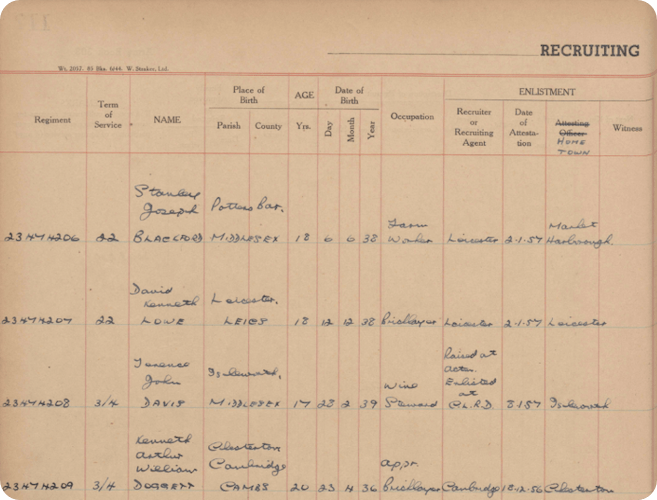 RECRUITING
Wt. 2017. 65 Bks. 6/44. W. Straker, Ltd.
Regiment
Term of Service
NAME
Place of Birth
Parish County
AGE
Yrs.
Date of Birth
Day Month Year
Occupation
ENLISTMENT
Recruiter or Recruiting Agent
Date of Attesta-tion
Attesting Officer HOME TOWN
Witness
Stanley
Joseph Potters Bar. Farm Market
23474206 22 BLACKFORD MIDDLESEX 18 6 6 38 Worker Leicester 2-1-57 Harborough
David
Kenneth Leicester.
23474207 22 LOWE LEICS 18 12 12 38 Bricklayer Leicester 2-1-57 Leicester
Terence Raised at
John Isleworth, Acton.
Wine Enlisted at
23474208 3/4 DAVIS MIDDLESEX 17 2 39 Steward 57 Isleworth
Kenneth
Arthur Chesterton
William Cambridge Appr.
23474209 3/4 DOGGETT CAMBS 20 23 4 36 Bricklayer Cambridge 18-12-56 Chesterton